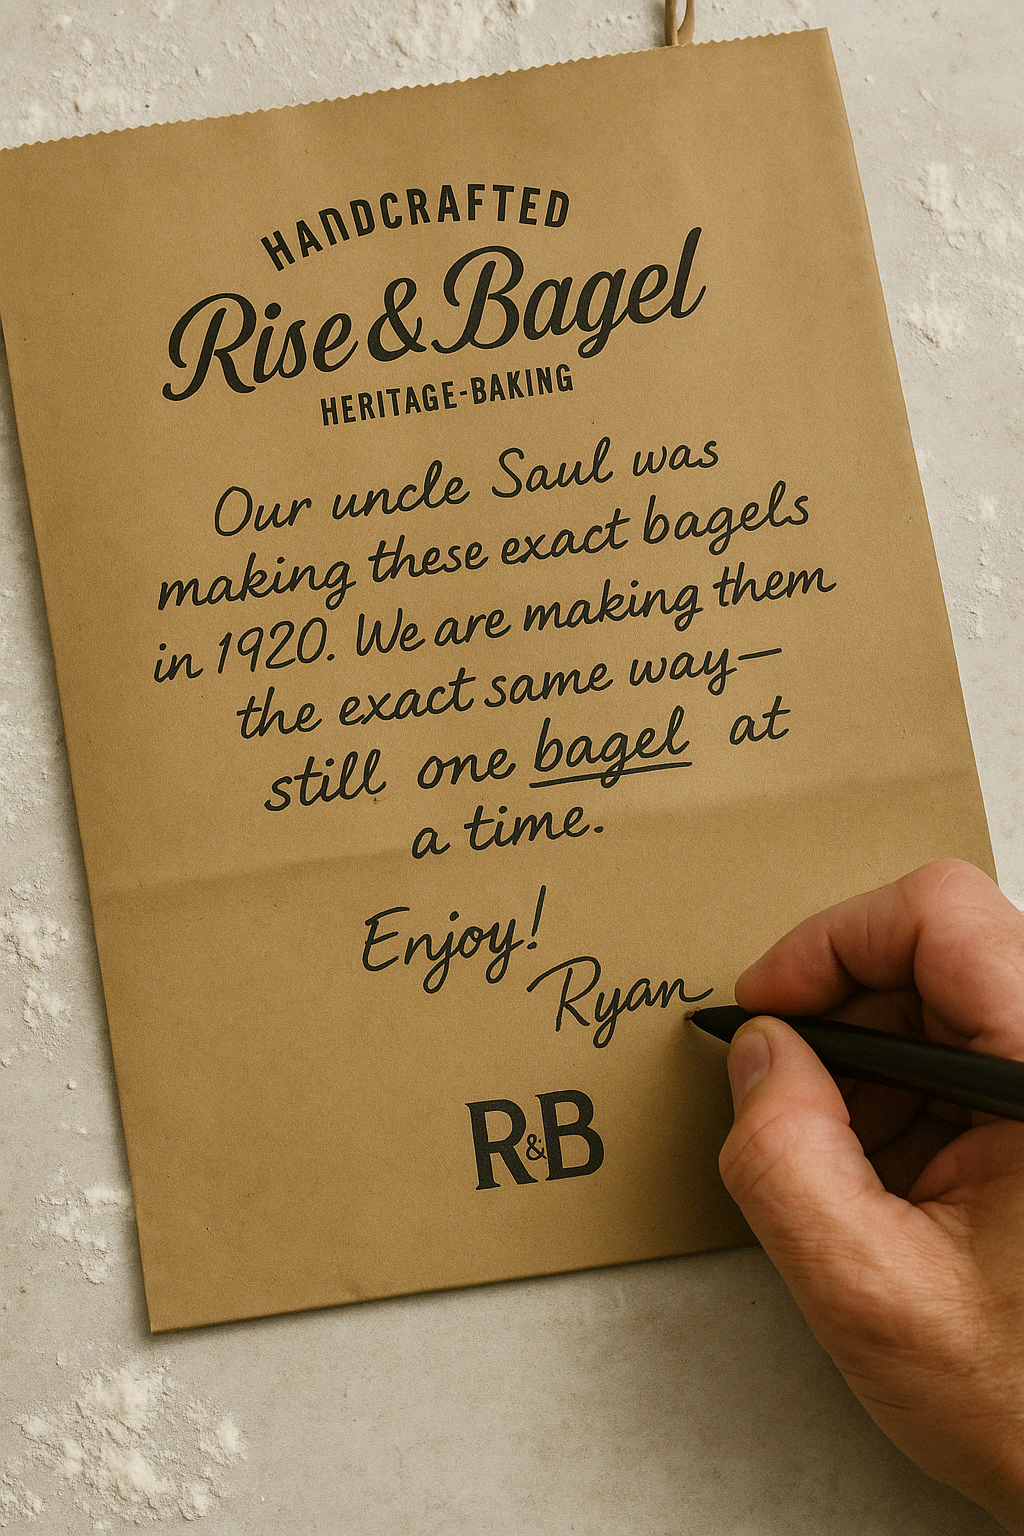 HANDCRAFTED
Rise & Bagel
HERITAGE-BAKING
Our uncle Saul was
making these exact bagels
in 1920. We are making them
the exact same way—
still one bagel at
a time.
Enjoy!
Ryan
R&B